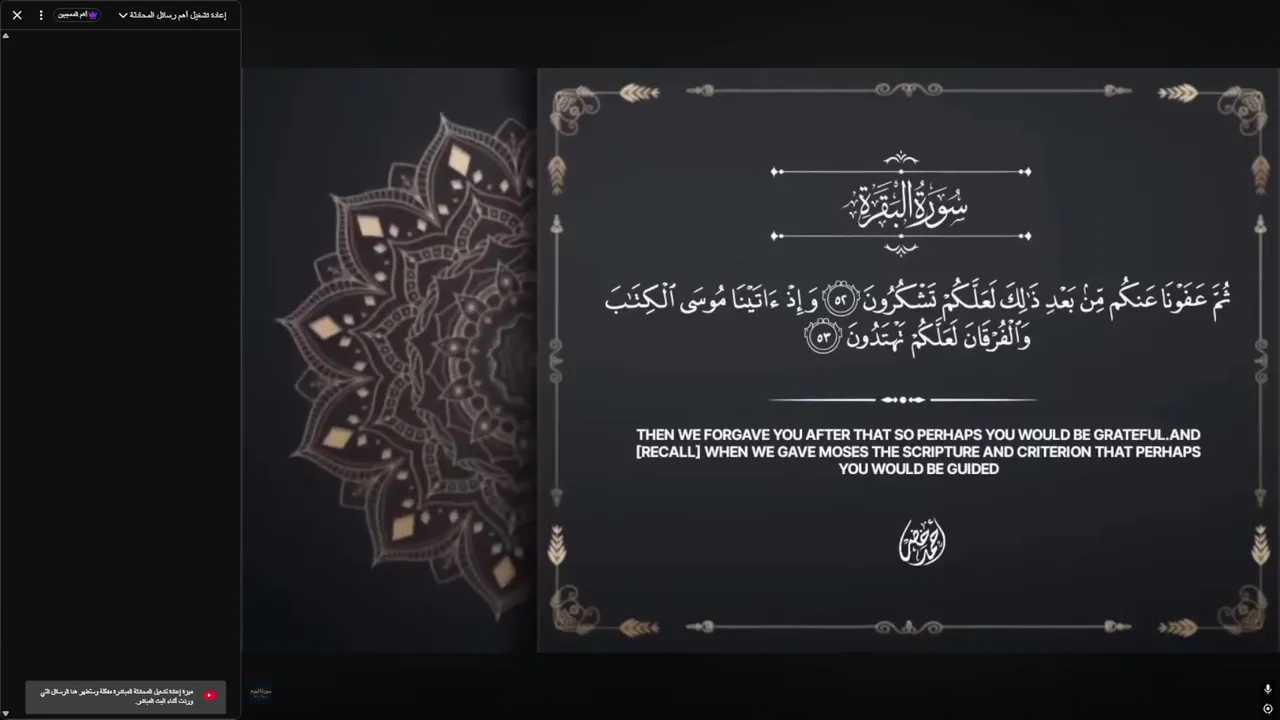 إعادة تشغيل أهم رسائل المحادثة
أهم المعجبين
سُورَةُ البَقَرَةِ
ثُمَّ عَفَوْنَا عَنكُم مِّنۢ بَعْدِ ذَٰلِكَ لَعَلَّكُمْ تَشْكُرُونَ ٥٢ وَإِذْ ءَاتَيْنَا مُوسَى ٱلْكِتَٰبَ
وَٱلْفُرْقَانَ لَعَلَّكُمْ تَهْتَدُونَ ٥٣
THEN WE FORGAVE YOU AFTER THAT SO PERHAPS YOU WOULD BE GRATEFUL.AND
[RECALL] WHEN WE GAVE MOSES THE SCRIPTURE AND CRITERION THAT PERHAPS
YOU WOULD BE GUIDED
أحمد خضر
ميزة إعادة تشغيل المحادثة المباشرة مفعّلة وستظهر هنا الرسائل التي
وردت أثناء البث المباشر.